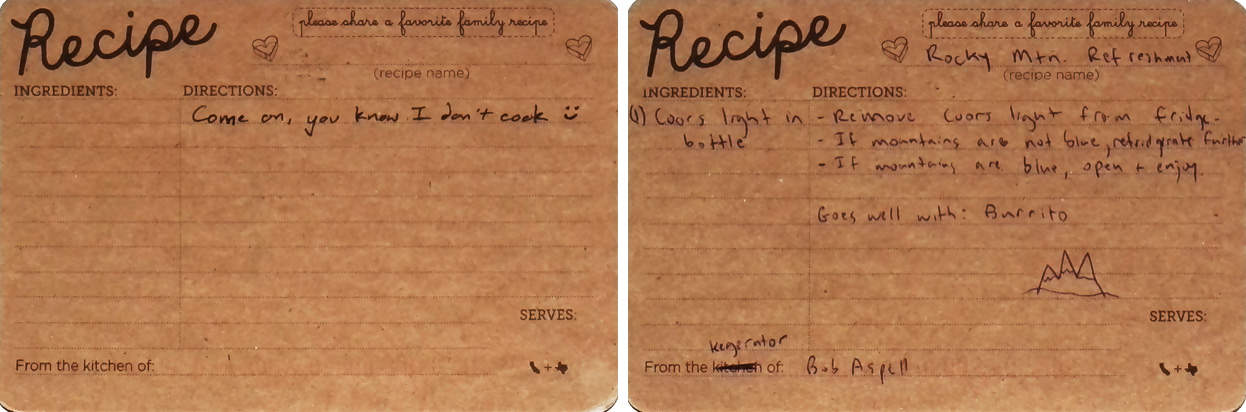 Recipe
please share a favorite family recipe
(recipe name)
INGREDIENTS: DIRECTIONS:
Come on, you know I don't cook
SERVES:
From the kitchen of:
+
Recipe
please share a favorite family recipe
Rocky Mtn. Refreshment
(recipe name)
INGREDIENTS: DIRECTIONS:
(1) Coors light in - Remove Coors light from fridge.
bottle - If mountains are not blue, refridgrate further
- If mountains are blue, open + enjoy.
Goes well with: Burrito
SERVES:
kegerator
From the kitchen of: Bob Aspell
+